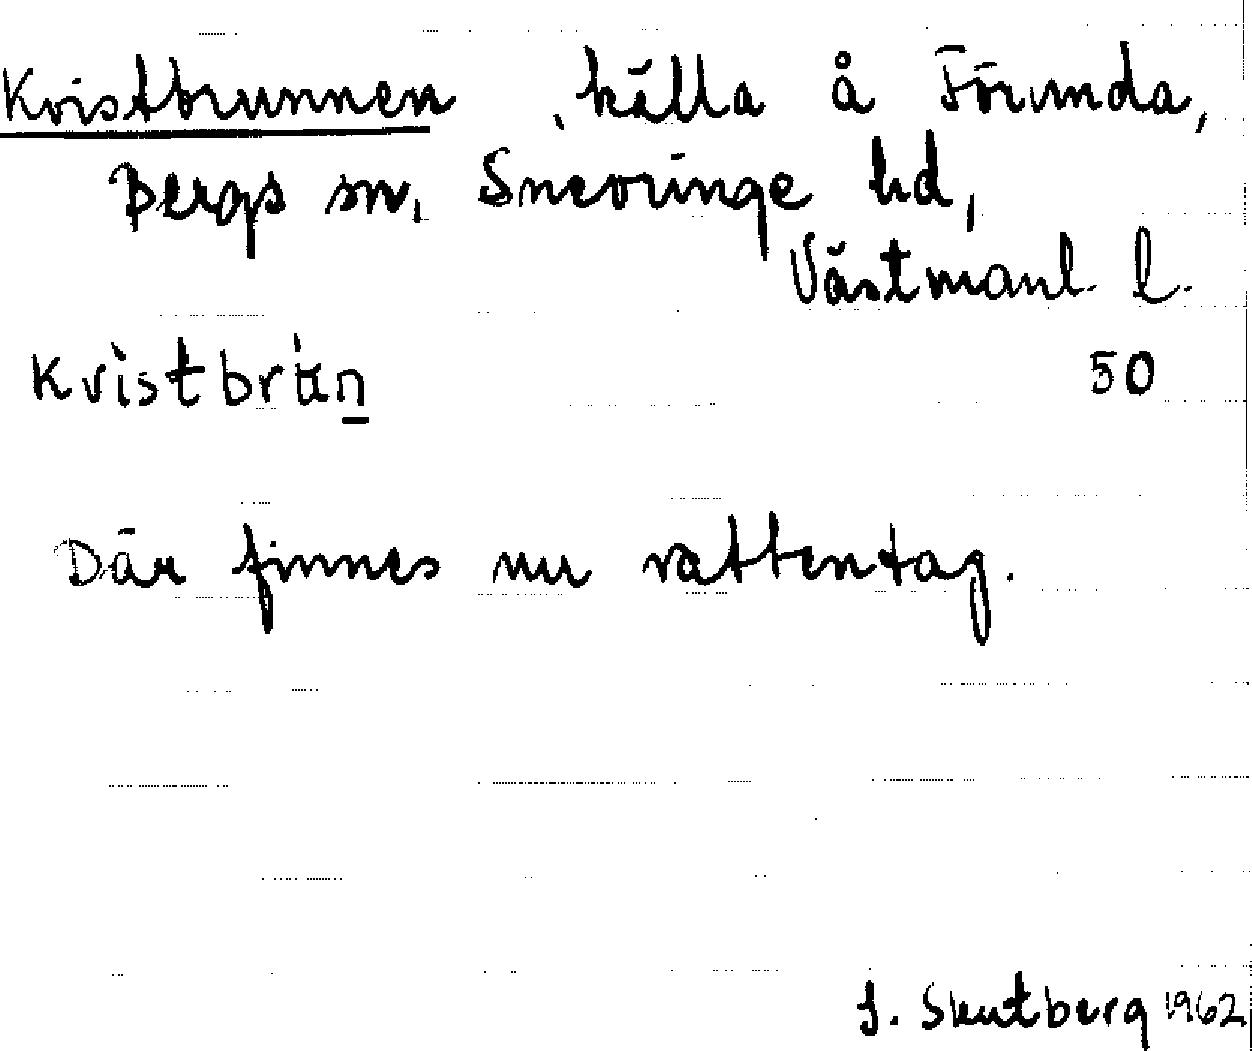 Kvistbrunnen, källa å Förunda,
Bergs sn, Snevringe hd,
Västmanl. l.
Kvìstbrùn 50
Där finnes nu vattentag.
J. Skutberg 1962